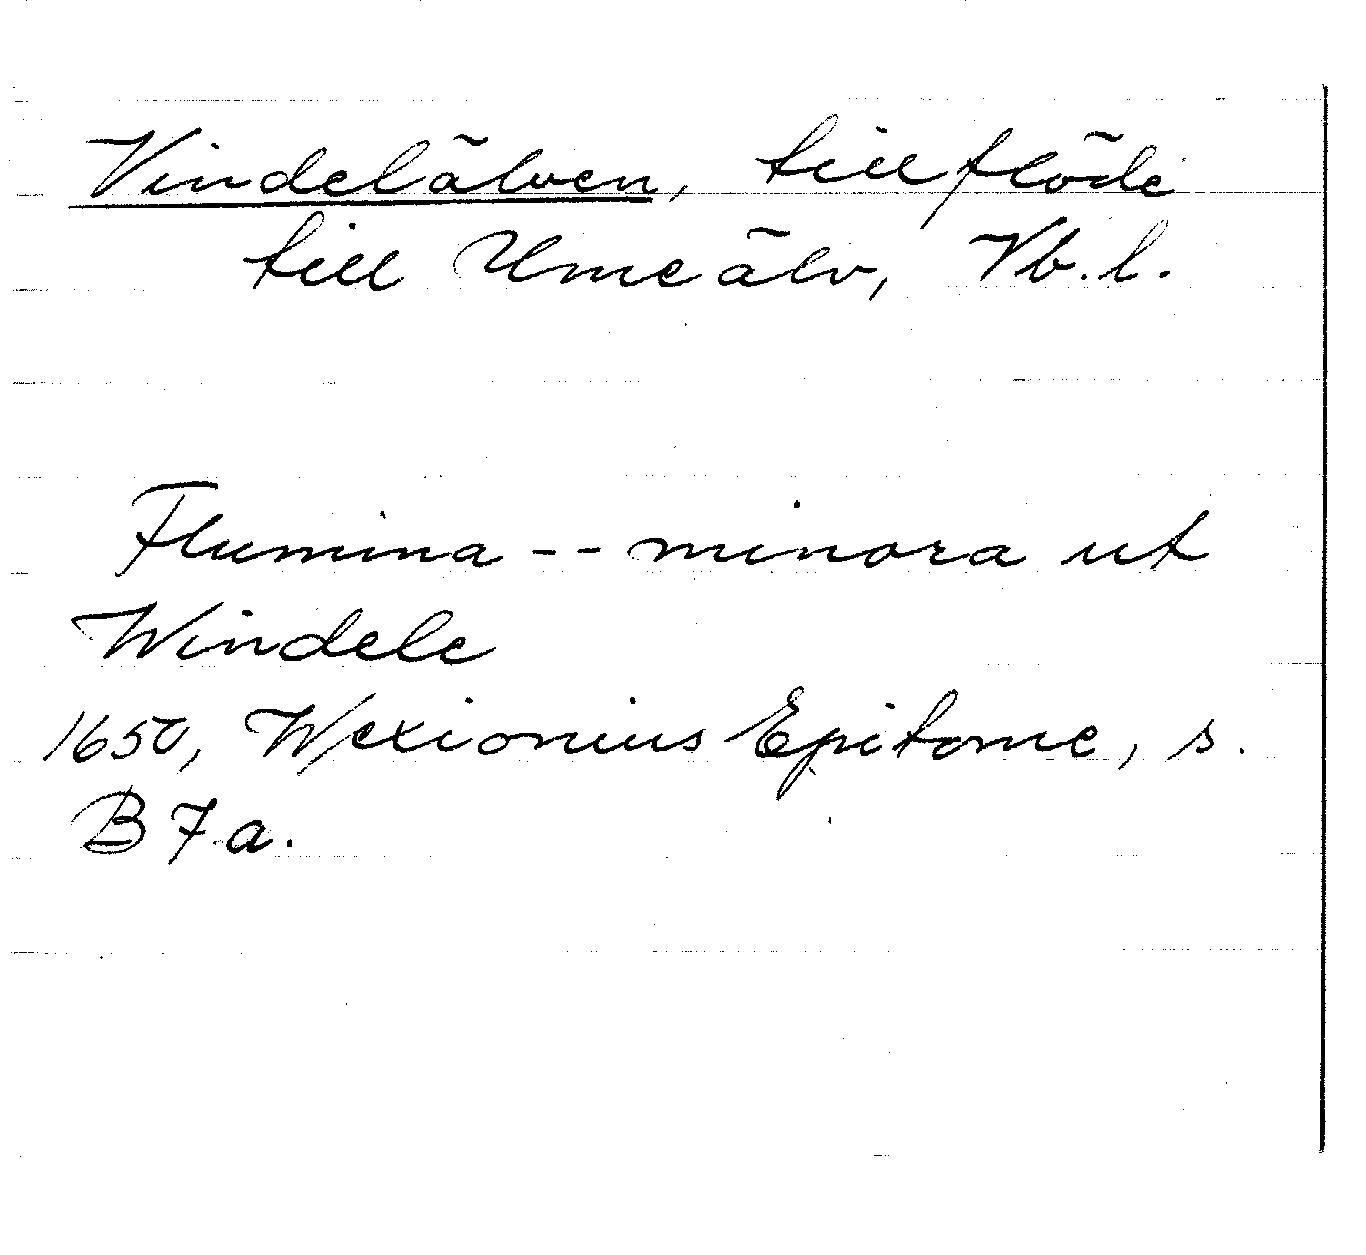 Vindelälven, tillflöde
till Ume älv, Vb. l.
Flumina -- minora ut
Windele
1650, Wexionius Epitome, s.
B 7 a.